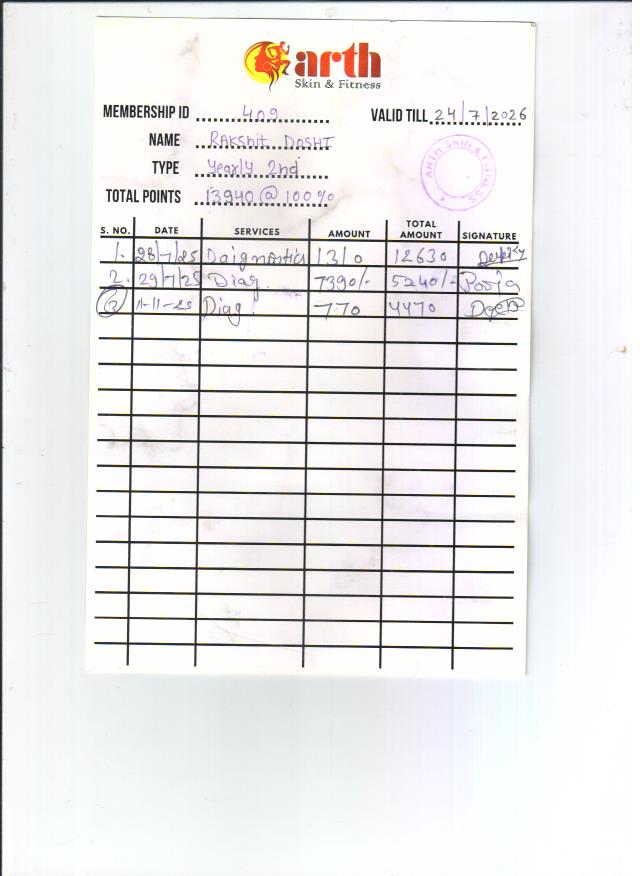 arth
Skin & Fitness
MEMBERSHIP ID 409 VALID TILL 24/7/2026
NAME RAKShit DOSHI
TYPE Yearly 2nd
TOTAL POINTS 13940 @ 100%
ARTH SKIN & FITNESS
S. NO. DATE SERVICES AMOUNT TOTAL AMOUNT SIGNATURE
1. 28/7/25 Daignostics 1310 12630
2. 29/7/25 Diag. 7390/- 5240/- Pooja
3 11-11-25 Diag. 770 4470